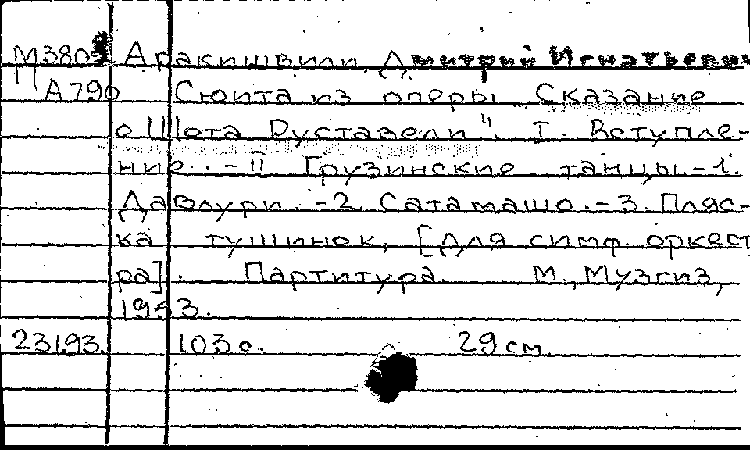 М3803 Аракишвили, Дмитрий Игнатьевич
А790 Сюита из оперы „Сказание
о Шота Руставели". I. Вступле-
ние. - II Грузинские танцы. - 1.
Давлури. - 2. Сатамашо. - 3. Пляс-
ка тушинок, [Для симф. оркест
ра]. Партитура. М., Музгиз,
1953.
23193. 103 с. 29 см.